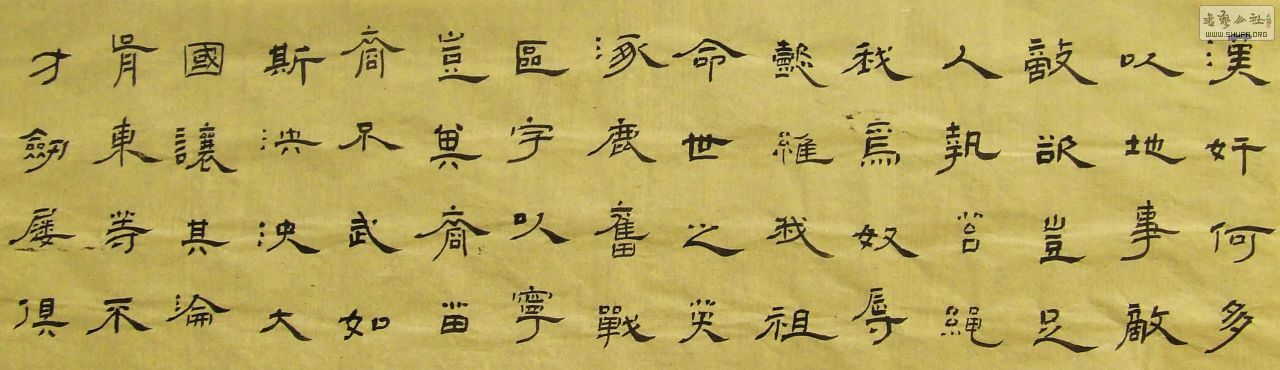 漢奸何多
以地事敵
敵欲豈足
人執笞繩
我爲奴辱
懿維我祖
命世之英
涿鹿奮戰
區宇以寧
豈異裔苗
裔不武如
斯泱泱大
國讓其淪
胥東等不
才劍屨俱
WWW.SHUFA.ORG